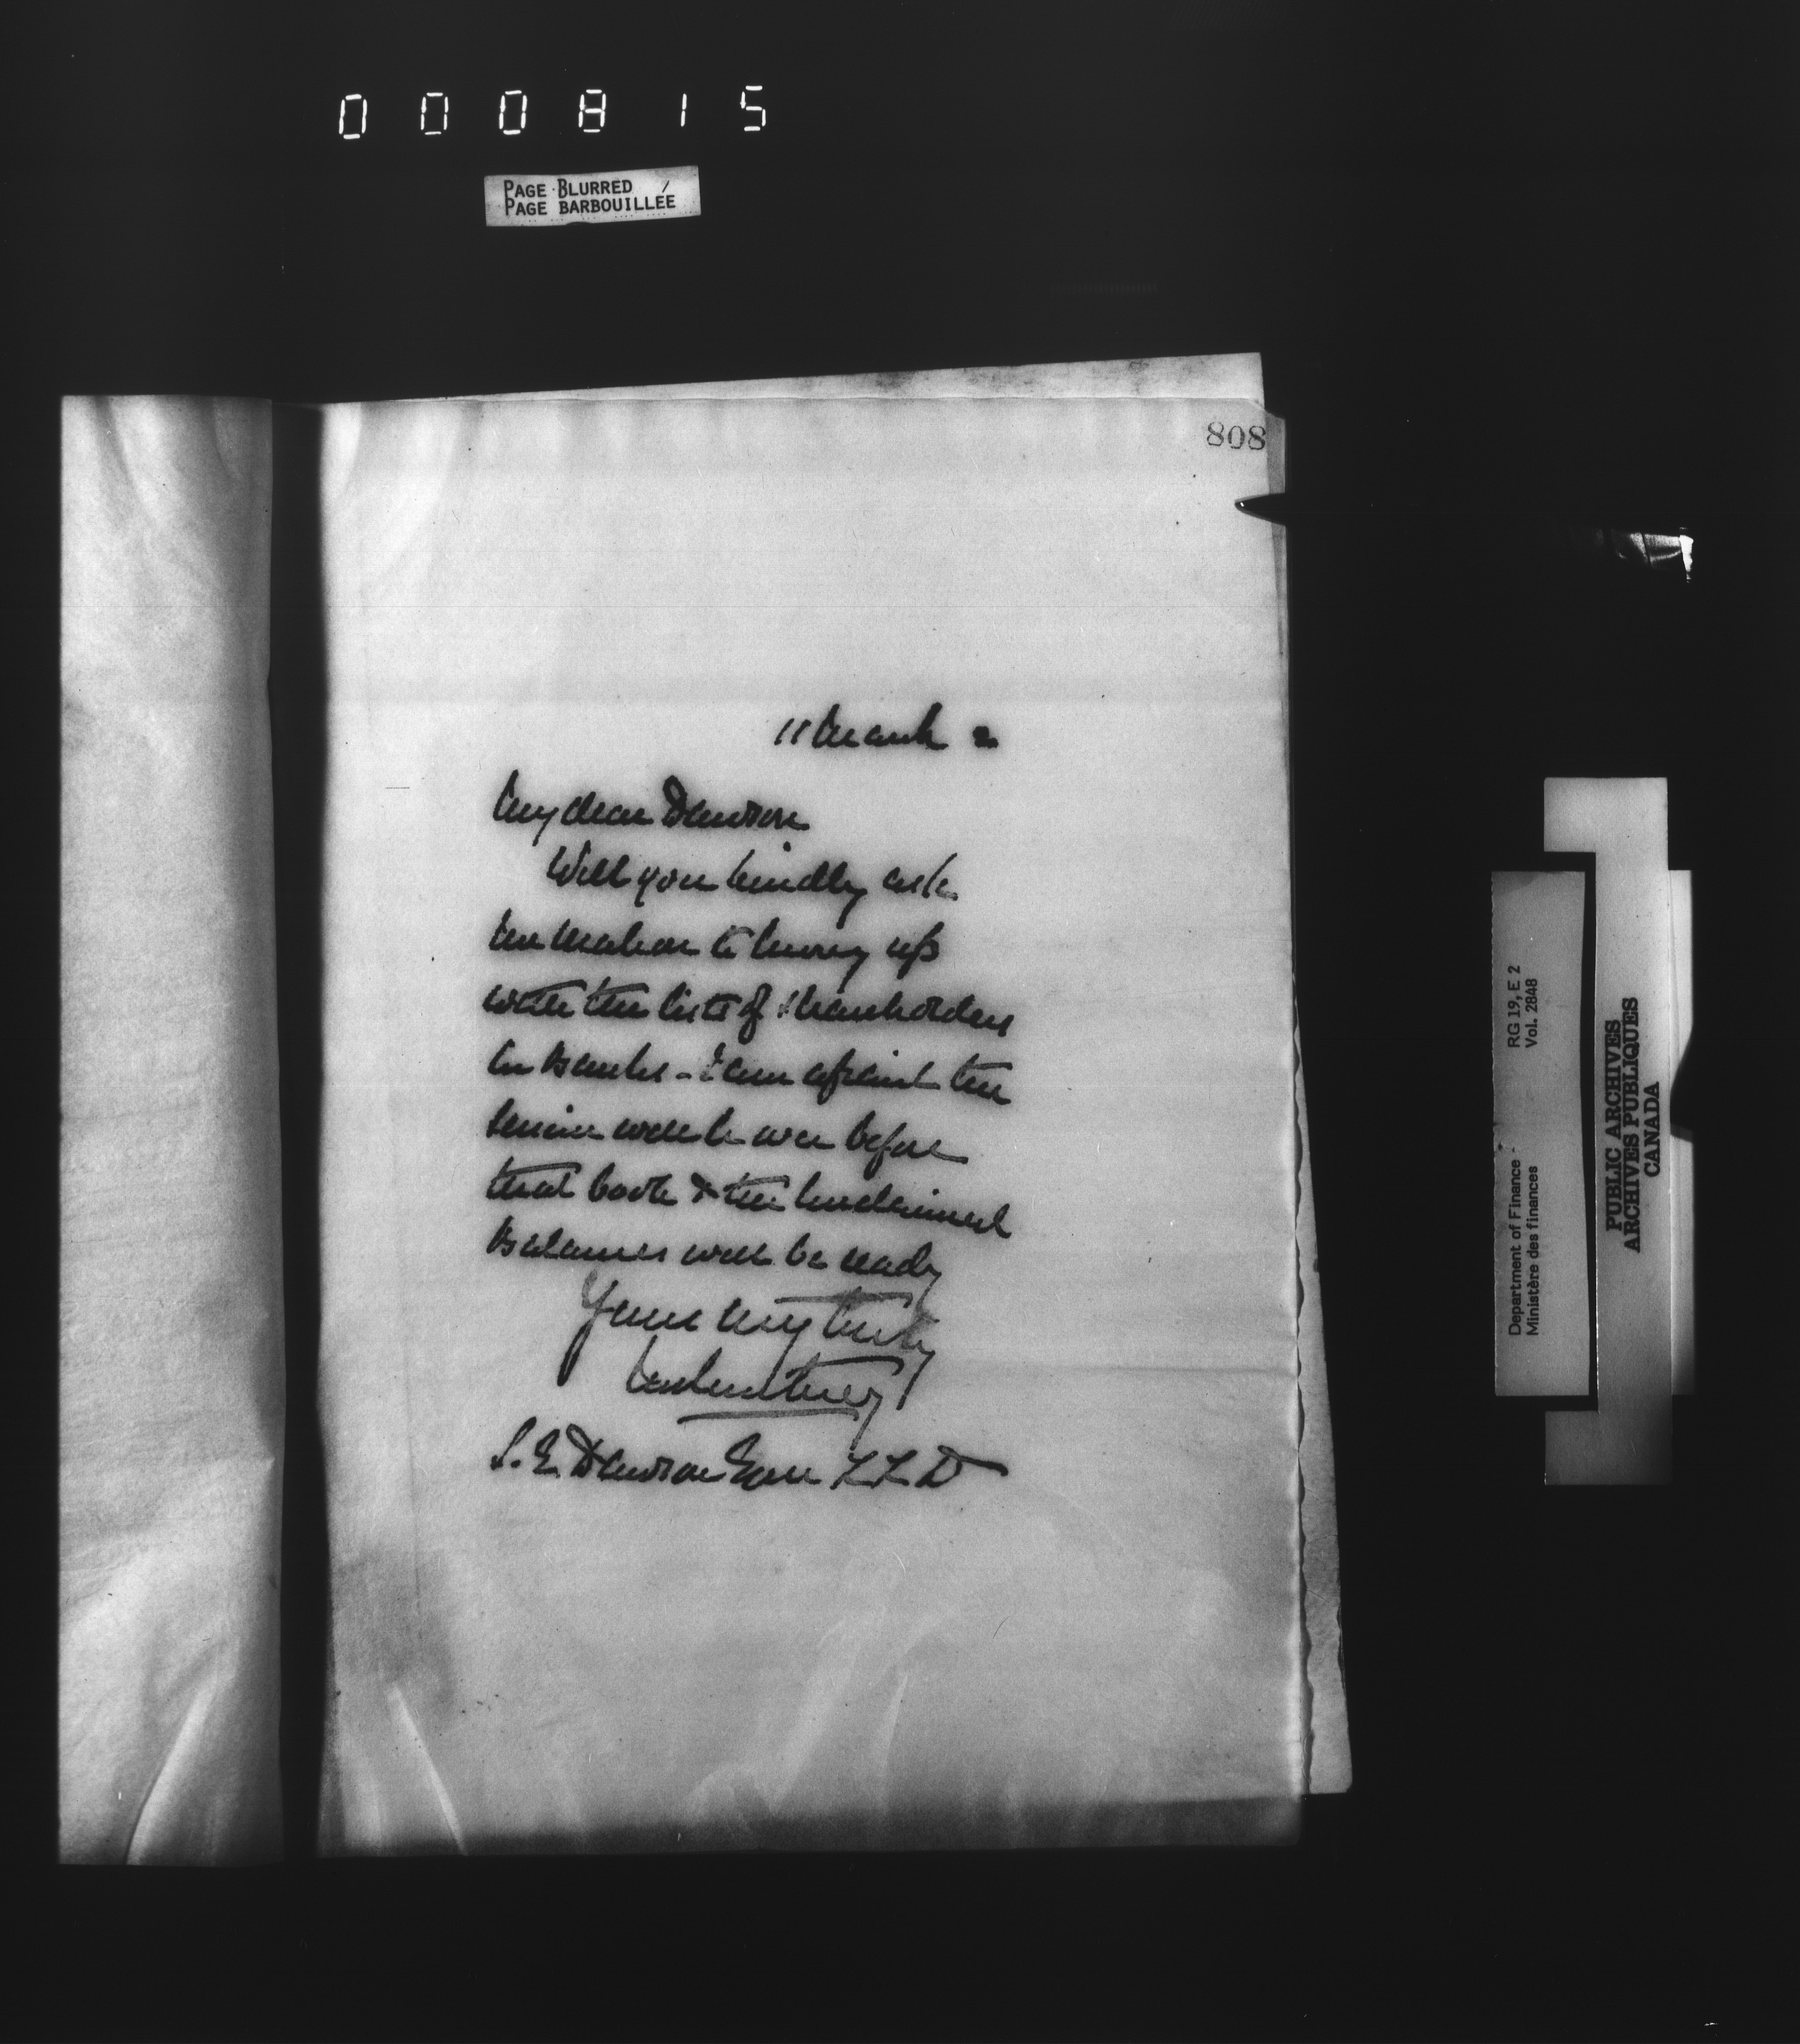 000815
PAGE BLURRED
PAGE BARBOUILLÉE
808
11 March 2
My dear Dawson
Will you kindly ask
Mr to hurry up
with the lists of Shareholders
in Banks - I am afraid the
session will be over before
that book & the Unclaimed
Balances will be ready
Yours very truly
J M Courtney
S. E. Dawson Esqre LLD
Department of Finance -
Ministère des finances
RG 19, E 2
Vol. 2848
PUBLIC ARCHIVES
ARCHIVES PUBLIQUES
CANADA